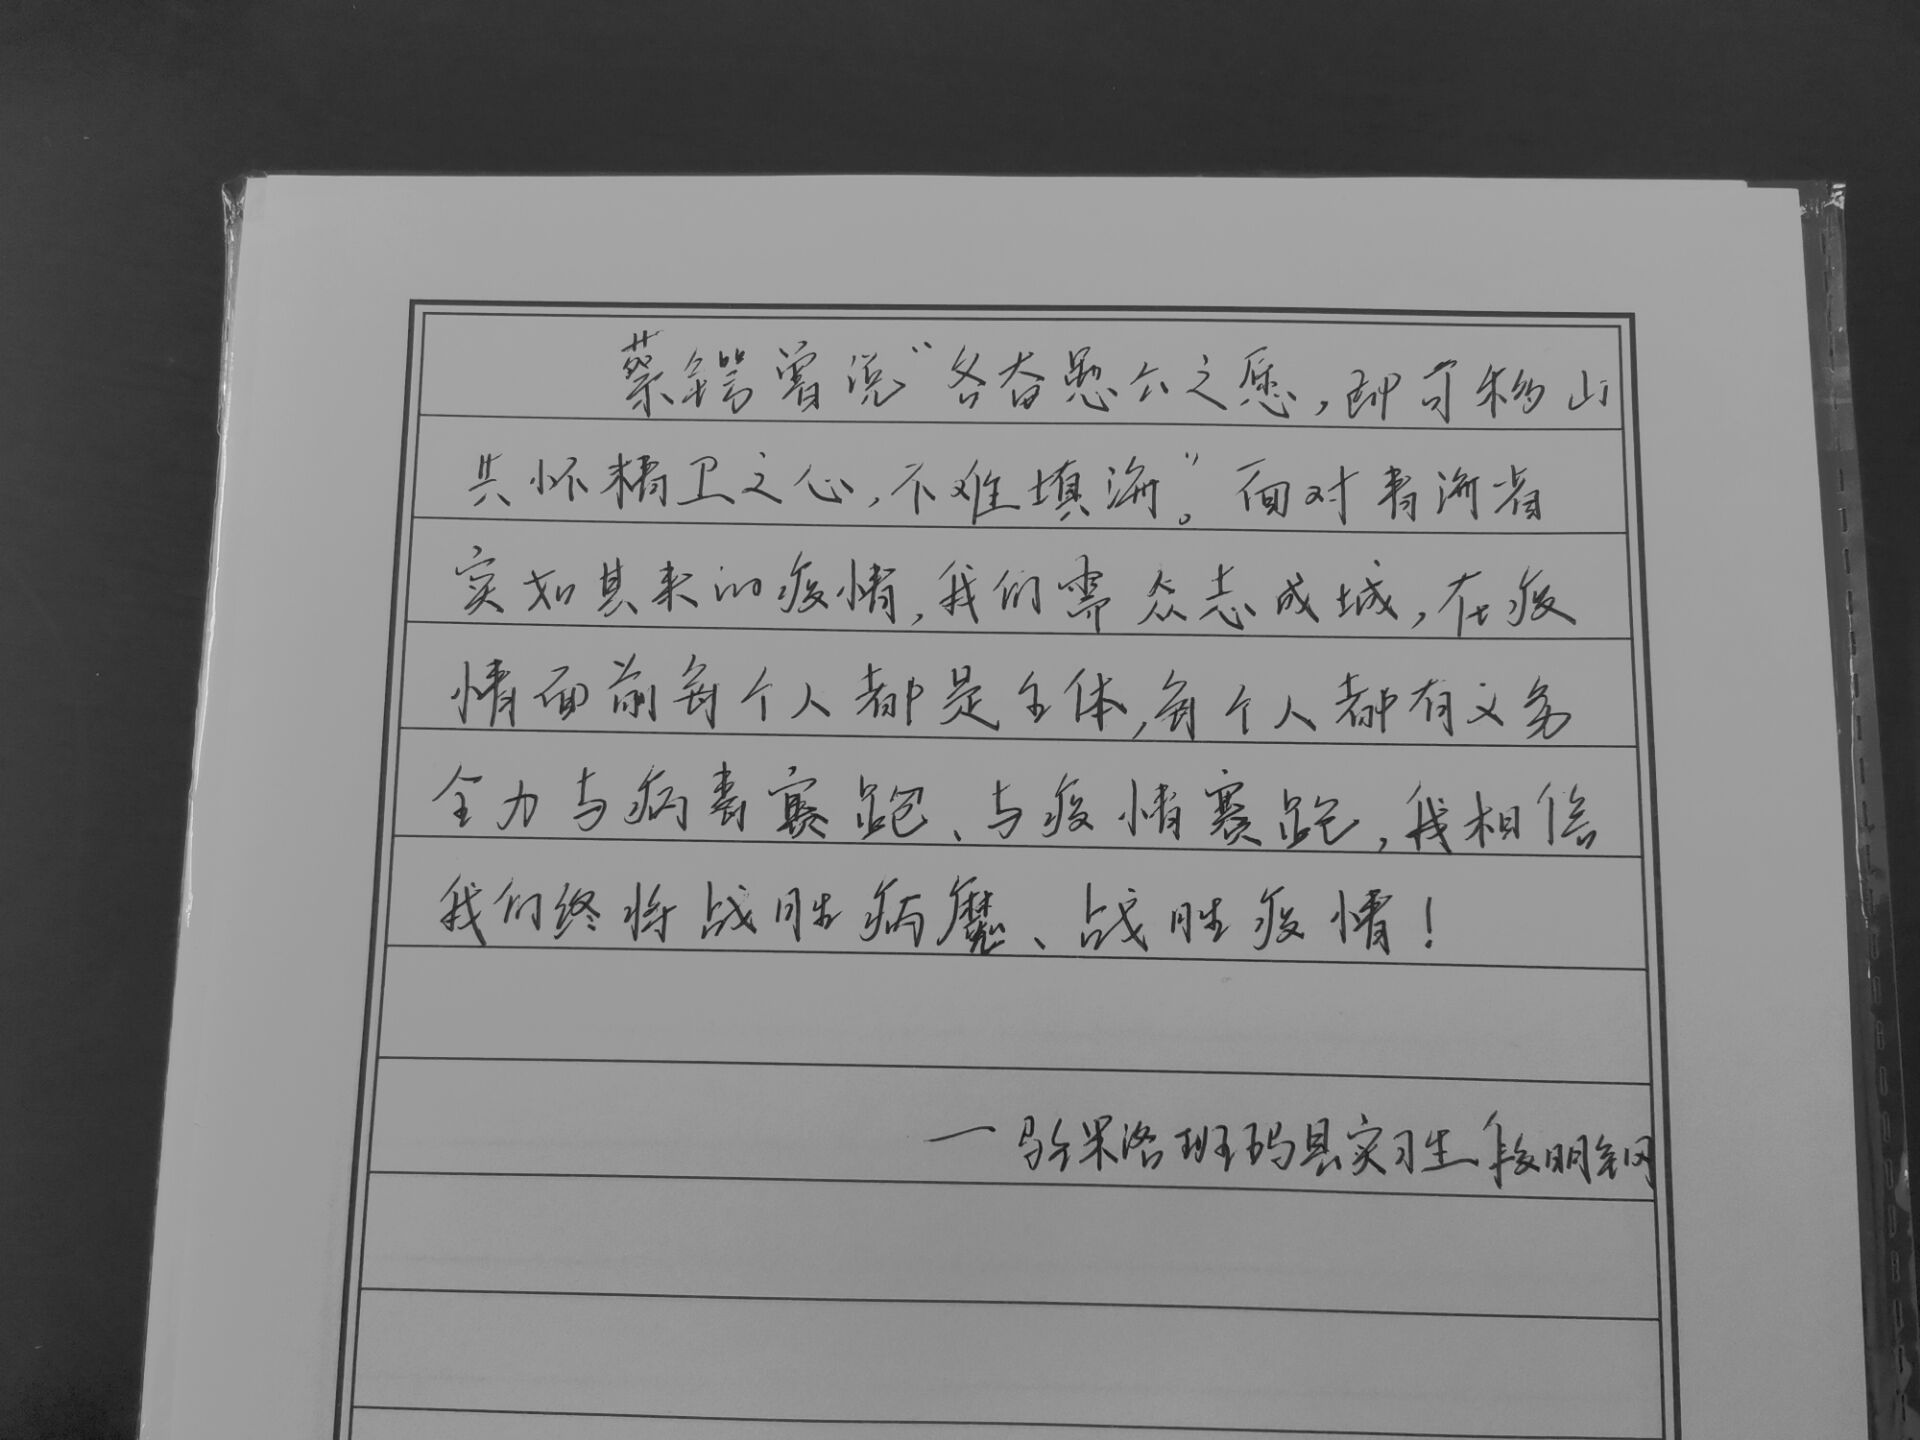 蔡锷曾说“各奋愚公之愿，即可移山
共怀精卫之心，不难填海。”面对青海省
突如其来的疫情，我们需众志成城，在疫
情面前每个人都是主体，每个人都有义务
全力与病毒赛跑、与疫情赛跑，我相信
我们终将战胜病魔、战胜疫情！
一驰果洛班玛县实习生段明钢